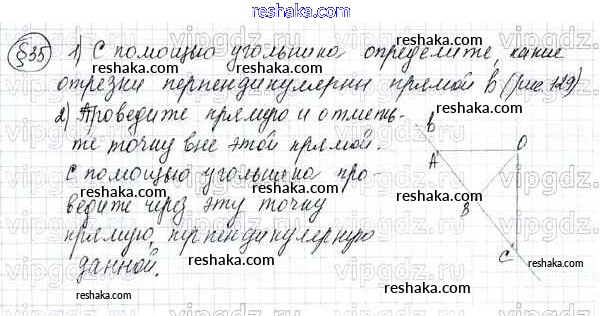 reshaka.com
§35 1) С помощью угольника определите, какие
отрезки перпендикулярны прямой B (рис. 129)
2) Проведите прямую и отметь-
те точку вне этой прямой.
С помощью угольника про-
ведите через эту точку
прямую, перпендикулярную
данной.
B
A
O
B
C
reshaka.com
reshaka.com
reshaka.com
reshaka.com
reshaka.com
reshaka.com
reshaka.com
reshaka.com
reshaka.com
reshaka.com
reshaka.com
vipgdz.com
vipgdz.com
vipgdz.com
vipgdz.com